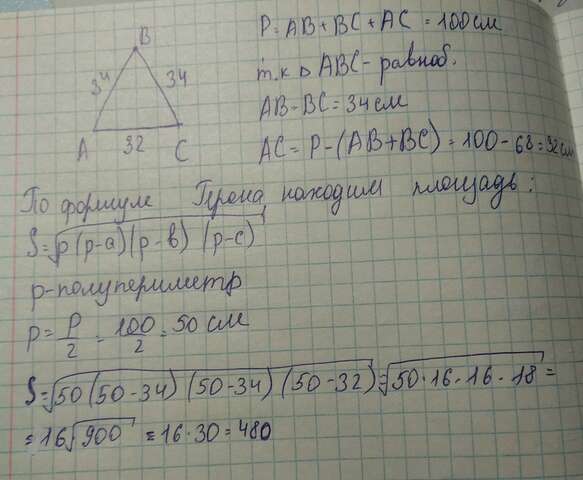 B
34 34
A 32 C
P = AB + BC + AC = 100 см
т.к △ ABC - равноб.
AB = BC = 34 см
AC = P - (AB + BC) = 100 - 68 = 32 см
По формуле Герона находим площадь:
S = √p(p-a)(p-b)(p-c)
p-полупериметр
p = P/2 = 100/2 = 50 см
S = √50(50-34)(50-34)(50-32) = √50·16·16·18 =
= 16√900 = 16·30 = 480